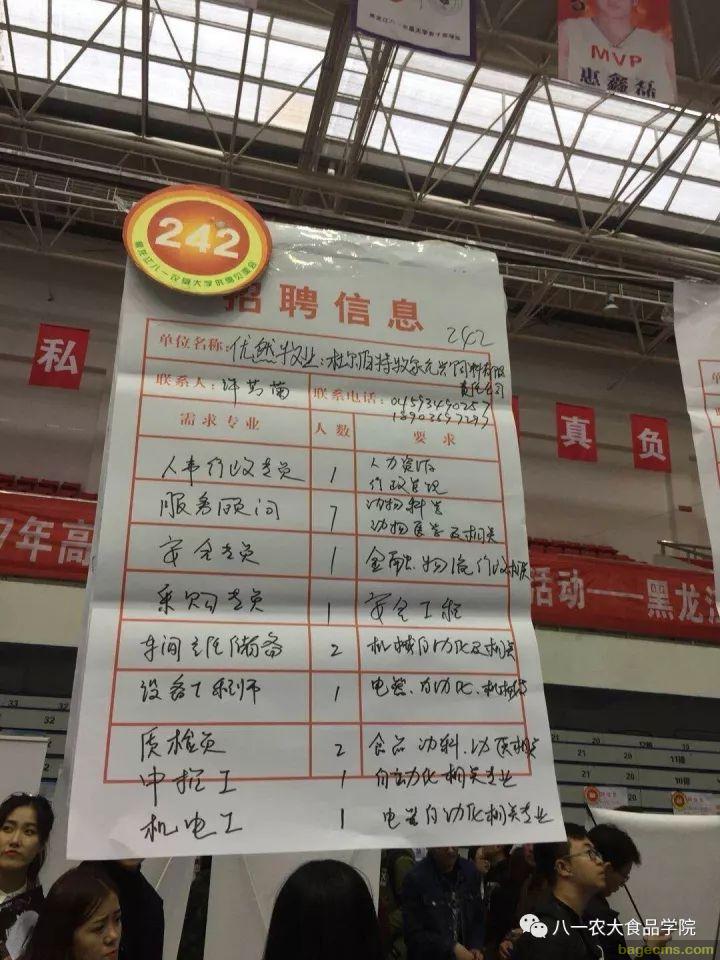 MVP
惠鑫磊
242
黑龙江八一农垦大学供需见面会
招聘信息
242
单位名称:优然牧业:杜尔伯特牧尔元兴饲料有限
责任公司
联系人:
联系电话:
需求专业 人数 要求
人事行政专员 1 人力资源
行政管理
服务顾问 7 动物科学
动物医学及相关
安全专员 1 金融、物流、行政相关
采购专员 1 安全工程
车间主任储备 2 机械自动化及相关
设备工程师 1 电气、自动化、机械
质检员 2 食品、动科、动医相关
中控工 1 自动化相关专业
机电工 1 电气自动化相关专业
私
真
负
7年高
活动——黑龙江
八一农大食品学院
bagecms.com